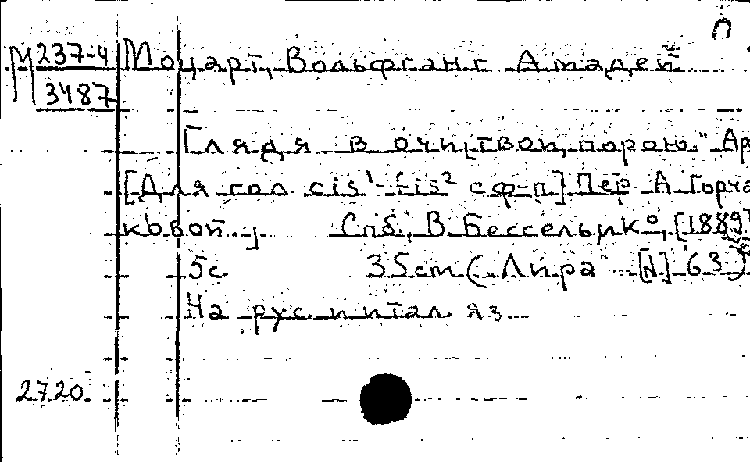 П
М 237-4 Моцарт, Вольфганг Амадей
3487
"Глядя в очи твои, порою" Ар
[Для гол. cis¹-fis² с ф-п] Пер. А. Горча
ковой. Спб., В. Бессель и Kº, [1889]
5с 35cm (Лира [N] 63)
На рус. и итал. яз.
2720